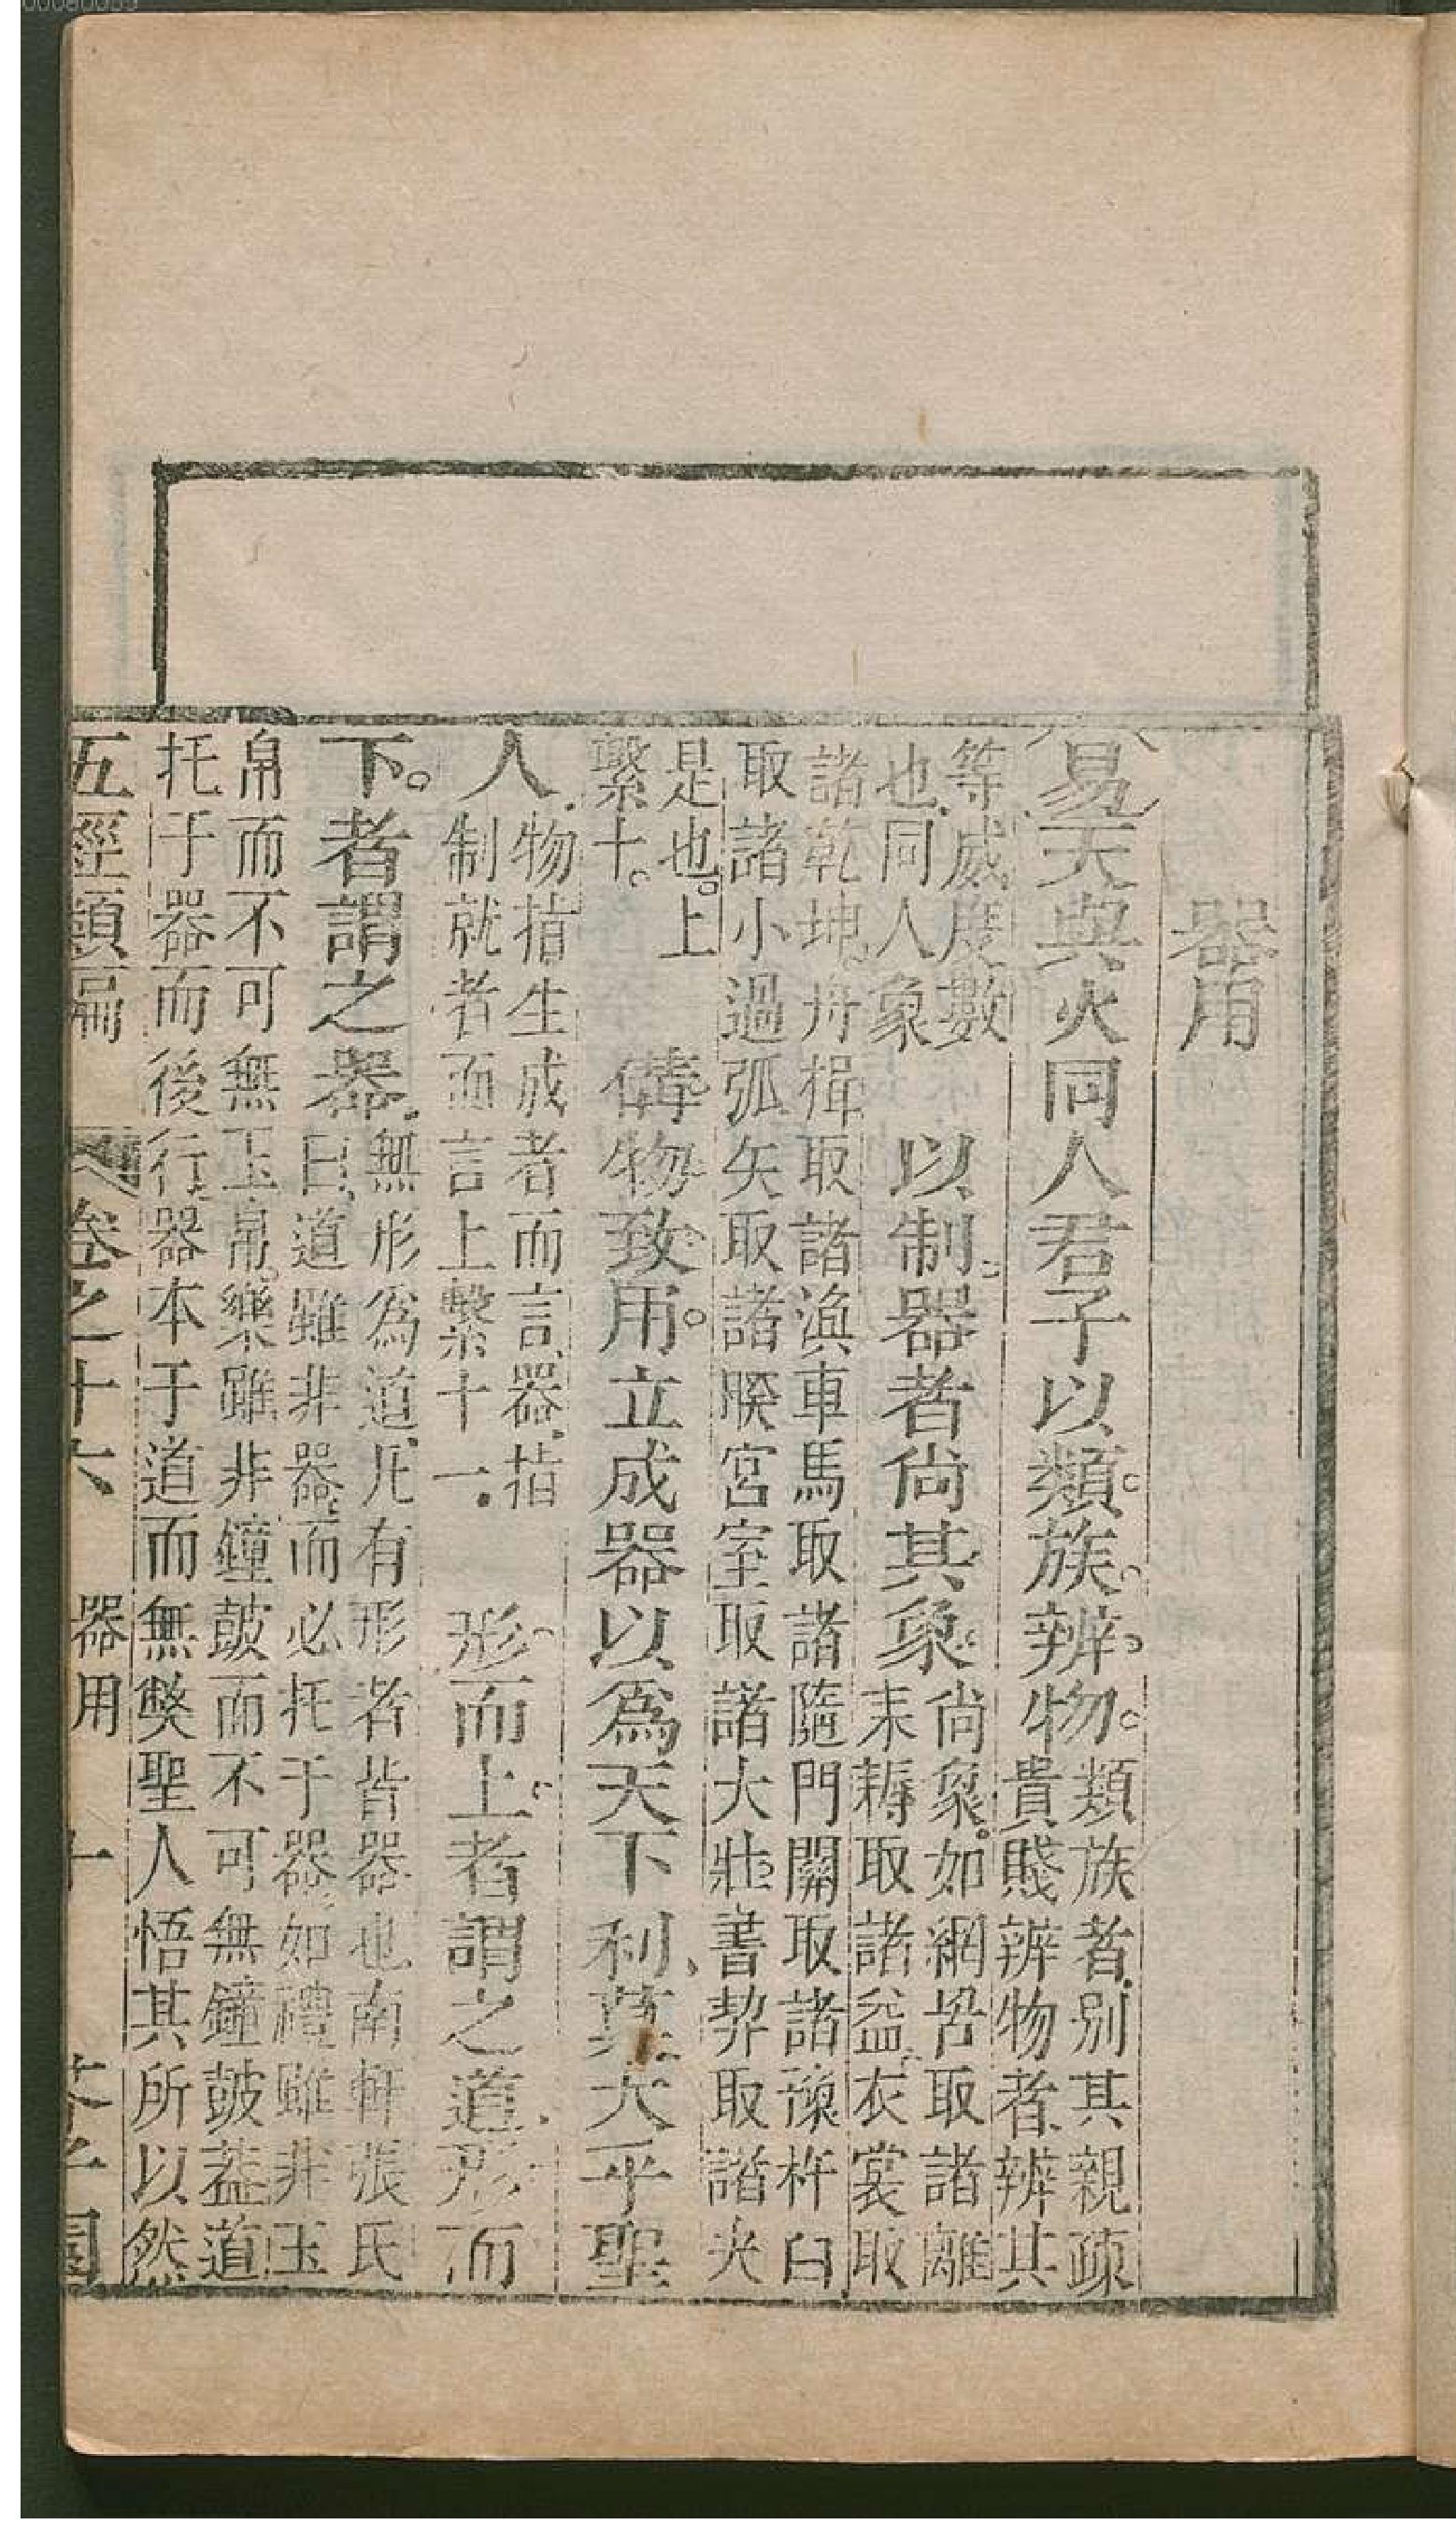 器用
易天與火同人君子以類族辨物。類族者別其親疎
貴賤辨物者辨其
等威度數
也同人象
以制器者尚其象。尚象如網罟取諸離
耒耨取諸益衣裳取
諸乾坤舟楫取諸渙車馬取諸隨門關取諸豫杵臼
取諸小過弧矢取諸睽宮室取諸大壯書契取諸夬
是也。上
繫十。
備物致用。立成器以為天下利莫大乎聖
人物指生成者而言器指
制就者而言上繫十一
形而上者謂之道形而
下。者謂之器無形為道凡有形者皆器也南軒張氏
曰道雖非器而必托于器如禮雖非玉
帛而不可無玉帛樂雖非鐘皷而不可無鐘皷葢道
托于器而後行器本于道而無獘聖人悟其所以然
五經類編 卷之十六 器用 十 芥子園